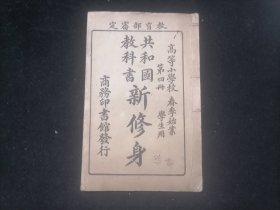 教育部審定
高等小學校 春季始業
第四冊 學生用
共和國
教科書
新修身
商務印書館發行